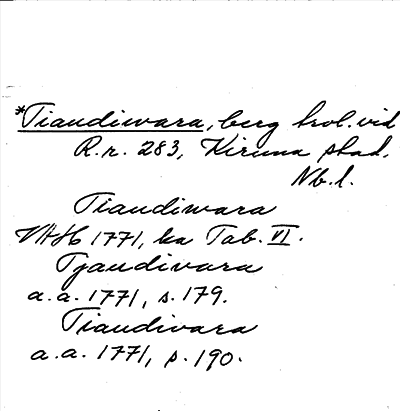 *Tiandiwara, berg trol. vid
R.r. 283, Kiruna stad.
Nb.l.
Tiandiwara
VAH 1771, ka Tab. VI.
Tjaudivara
a.a. 1771, s. 179.
Tiaudivara
a.a. 1771, s. 190.